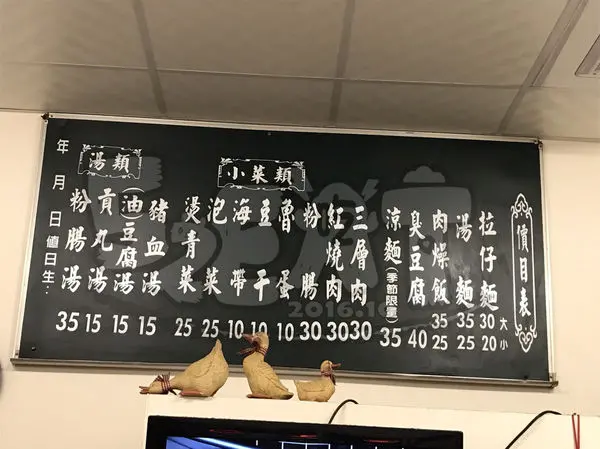 價目表
拉仔麵 30 大 20 小
湯麵 35 25
肉燥飯 35 25
臭豆腐 40
涼麵(季節限量) 35
小菜類
三層肉 30
紅燒肉 30
粉腸 30
魯蛋 10
豆干 10
海帶 10
泡菜 25
燙青菜 25
湯類
豬血湯 15
(油)豆腐湯 15
貢丸湯 15
粉腸湯 35
年月日值日生：